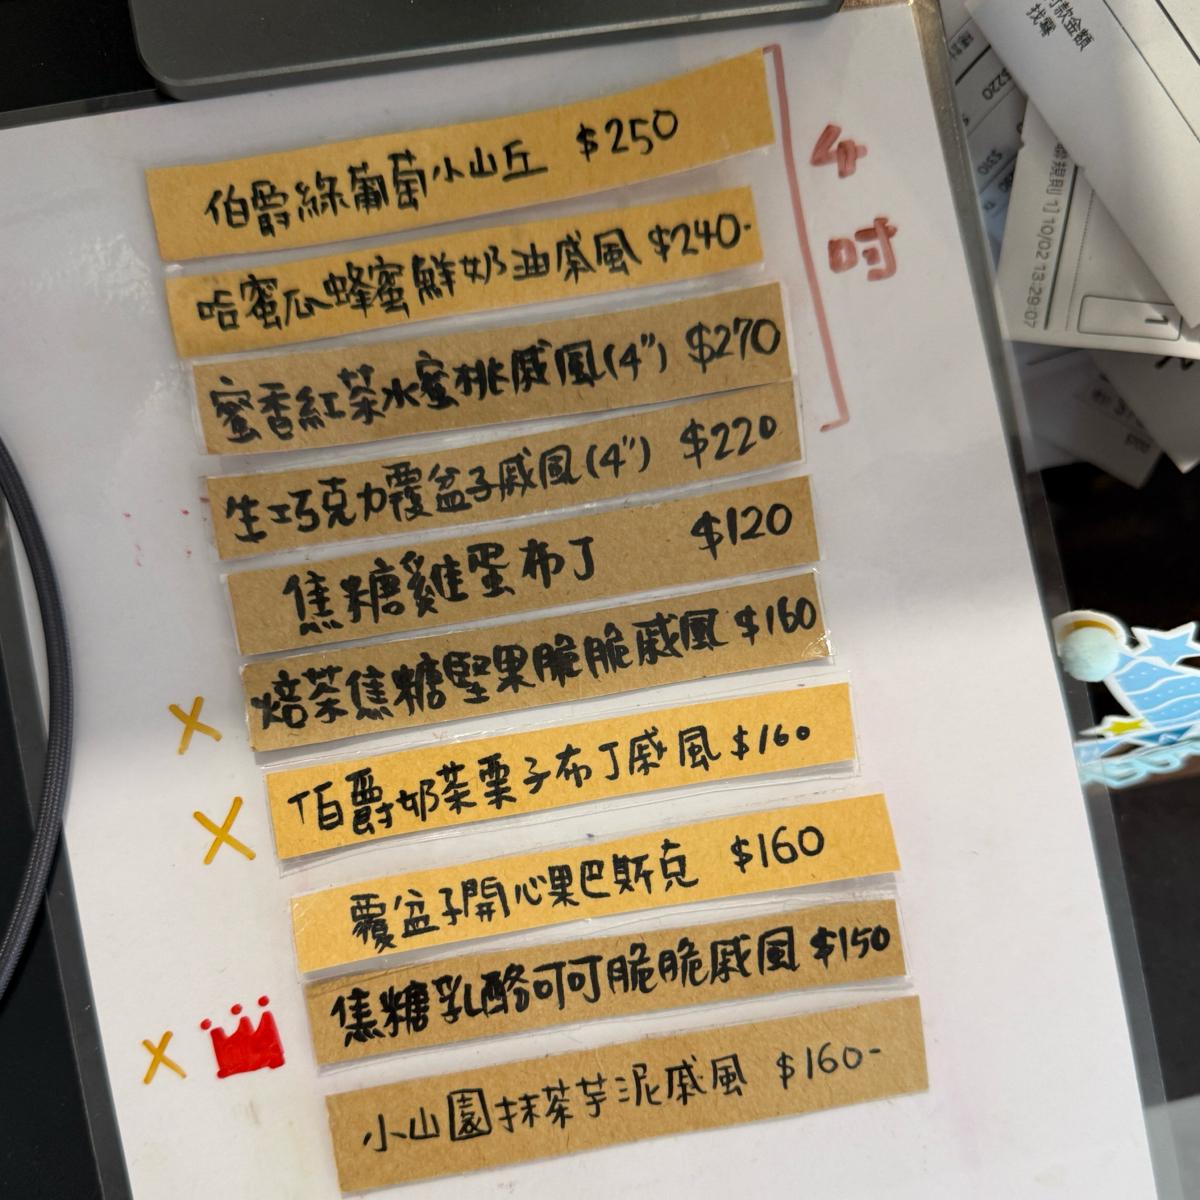 伯爵綠葡萄小山丘 $250
哈蜜瓜蜂蜜鮮奶油戚風 $240-
蜜香紅茶水蜜桃戚風(4") $270
4吋
生巧克力覆盆子戚風(4") $220
焦糖雞蛋布丁 $120
焙茶焦糖堅果脆脆戚風 $160
X
伯爵奶茶栗子布丁戚風 $160
X
覆盆子開心果巴斯克 $160
焦糖乳酪可可脆脆戚風 $150
X
小山園抹茶芋泥戚風 $160-
找零
10/02 13:29:07